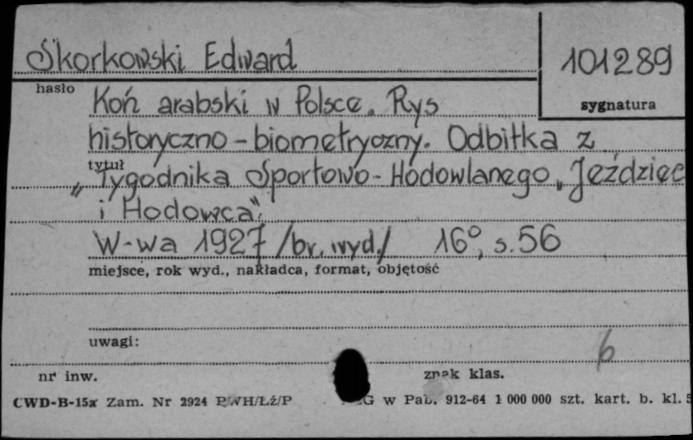 Skorkowski Edward
101289
hasło
sygnatura
Koń arabski w Polsce. Rys
historyczno-biometryczny. Odbitka z
tytuł
„Tygodnika Sportowo-Hodowlanego „Jeździec
i Hodowca".
W-wa 1927 /br. wyd./ 16°, s. 56
miejsce, rok wyd., nakładca, format, objętość
uwagi:
6
nr inw.
znak klas.
CWD-B-15a Zam. Nr 2924 w Pab. 912-64 1 000 000 szt. kart. b. kl. 5